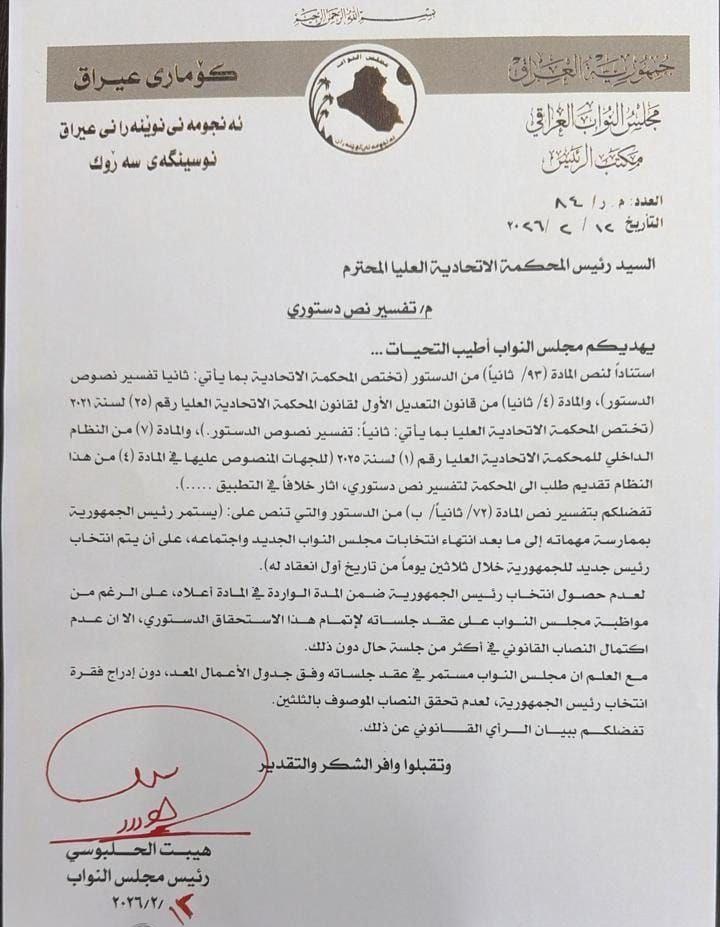 بسم الله الرحمن الرحيم
جمهورية العراق
كۆماری عیراق
مجلس النواب العراقي
ئه نجومه نی نوێنه رانی عیراق
مكتب الرئيس
نوسینگه ی سه رۆك
مجلس النواب
ئه نجومه نی نوێنه ران
العدد: م. ر/ ٨٤
التأريخ ١٢ / ٢ /٢٠٢٦
السيد رئيس المحكمة الاتحادية العليا المحترم
م/ تفسير نص دستوري
يهديكم مجلس النواب أطيب التحيات ...
استناداً لنص المادة (٩٣/ ثانياً) من الدستور (تختص المحكمة الاتحادية بما يأتي: ثانيا تفسير نصوص
الدستور)، والمادة (٤/ ثانيا) من قانون التعديل الأول لقانون المحكمة الاتحادية العليا رقم (٢٥) لسنة ٢٠٢١
(تختص المحكمة الاتحادية العليا بما يأتي: ثانياً: تفسير نصوص الدستور.)، والمادة (٧) من النظام
الداخلي للمحكمة الاتحادية العليا رقم (١) لسنة ٢٠٢٥ (للجهات المنصوص عليها في المادة (٤) من هذا
النظام تقديم طلب الى المحكمة لتفسير نص دستوري، اثار خلافاً في التطبيق .....).
تفضلكم بتفسير نص المادة (٧٢/ ثانياً/ ب) من الدستور والتي تنص على: (يستمر رئيس الجمهورية
بممارسة مهماته إلى ما بعد انتهاء انتخابات مجلس النواب الجديد واجتماعه، على أن يتم انتخاب
رئيس جديد للجمهورية خلال ثلاثين يوماً من تاريخ أول انعقاد له).
لعدم حصول انتخاب رئيس الجمهورية ضمن المدة الواردة في المادة أعلاه، على الرغم من
مواظبة مجلس النواب على عقد جلساته لإتمام هذا الاستحقاق الدستوري، الا ان عدم
اكتمال النصاب القانوني في أكثر من جلسة حال دون ذلك.
مع العلم ان مجلس النواب مستمر في عقد جلساته وفق جدول الأعمال المعد، دون إدراج فقرة
انتخاب رئيس الجمهورية، لعدم تحقق النصاب الموصوف بالثلثين.
تفضلكم ببيان الرأي القانوني عن ذلك.
وتقبلوا وافر الشكر والتقدير
هيبت الحلبوسي
رئيس مجلس النواب
١٢ /٢٠٢٦/٢